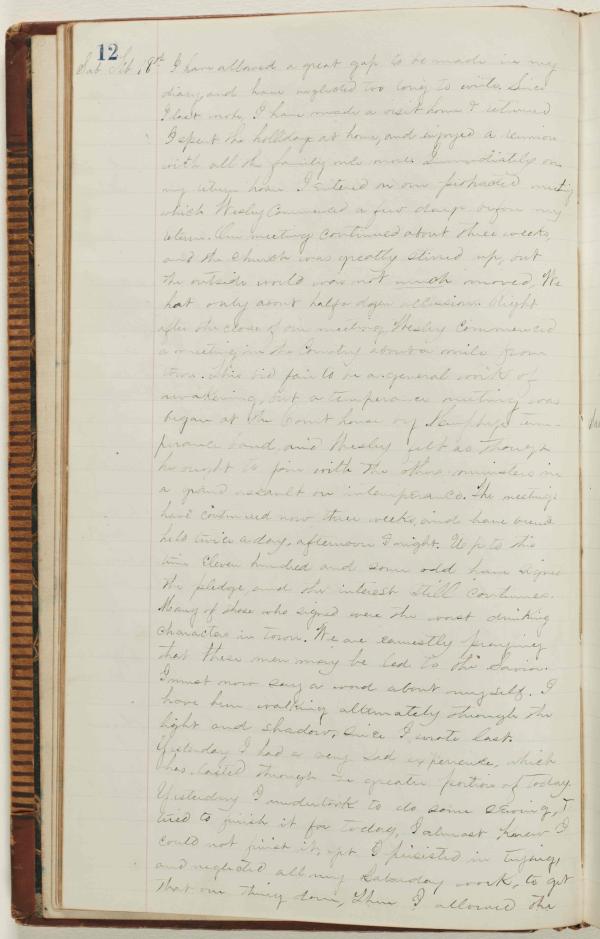 12
Sat. Feb. 18th I have allowed a great gap to be made in my
diary, and have neglected too long to write. Since
I last wrote, I have made a visit home & returned
I spent the hollidays at home, and enjoyed a reunion
with all the family once more. Immediately on
my return home I entered on our protracted meeting
which Wesley Commenced a few days before my
return. Our meeting continued about three weeks,
and the church was greatly stirred up, but
the outside world was not much moved. We
had only about half a dozen accessions. Right
after the close of our meeting Wesley Commenced
a meeting in the Country about a mile from
town. This bid fair to be a general work of
awakening, but a temperance meeting was
began at the Court house by Murphy's tem-
perance band, and Wesley felt as though
he ought to join with the other ministers in
a grand assault on intemperance. The meetings
have continued now three weeks, and have been
held twice a day, afternoon & night. Up to this
time eleven hundred and some odd have signed
the pledge, and the interest still continues.
Many of those who signed were the worst drinking
characters in town. We are earnestly praying
that these men may be led to the Savior.
I must now say a word about myself. I
have been walking alternately through the
light and shadow, since I wrote last.
Yesterday I had a very sad experience, which
has lasted through the greater portion of today.
Yesterday I undertook to do some sewing, &
tried to finish it for today, I almost knew I
could not finish it, yet I persisted in trying,
and neglected all my Saturday work, to get
that one thing done, then I allowed the